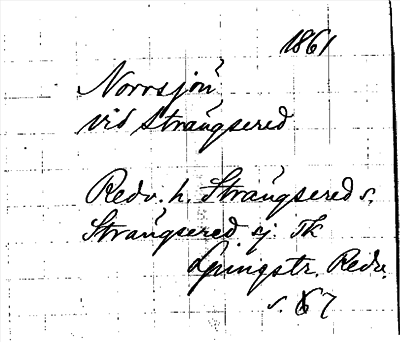 1861
Norrsjön
vid Strängsered
Redv. h. Strängsered s.
Strängsered. sj. Tk
Ljungstr. Redv.
s. 67